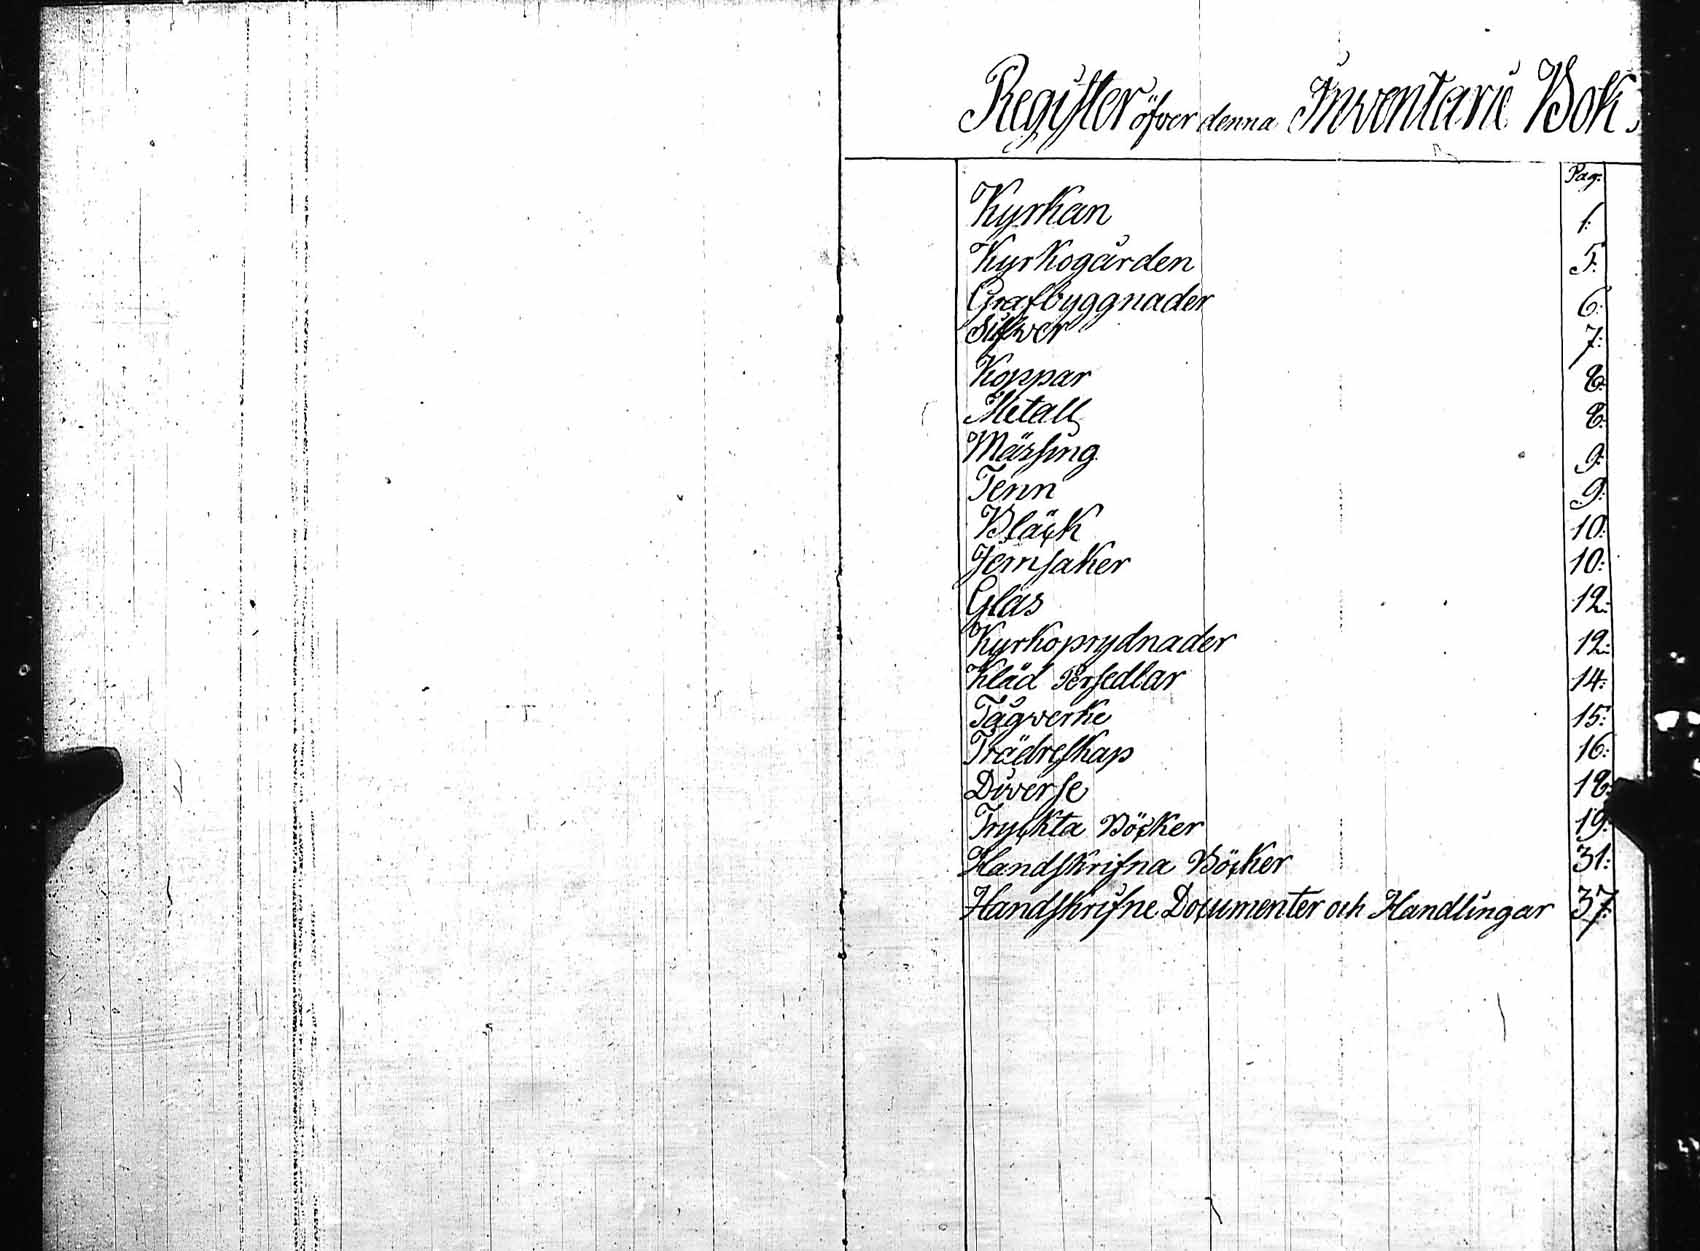 Register öfver denna Inventarie Bok.
Pag:
Kyrkan 1:
Kyrkogården 5:
Grafbyggnader 6:
Silfwer 7:
Koppar 8:
Metall 8:
Mässing 9:
Tenn 9:
Bläck 10:
Jernsaker 10:
Glas 12:
Kyrkoprydnader 12:
Kläd Persedlar 14:
Tågverke 15:
Trädreskap 16:
Diverse 18:
Tryckta Böcker 19:
Handskrifna Böcker 31:
Handskrifne Documenter och Handlingar 37: